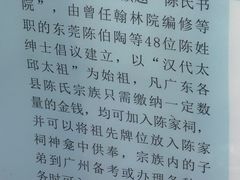 陈氏书
院”，由曾任翰林院编修等
职的东莞陈伯陶等48位陈姓
绅士倡议建立，以“汉代太
邱太祖”为始祖，凡广东各
县陈氏宗族只需缴纳一定数
量的金钱，均可加入陈家祠，
并可以将祖先牌位放入陈家
祠神龛中供奉，宗族内的子
弟到广州备考或办理各种